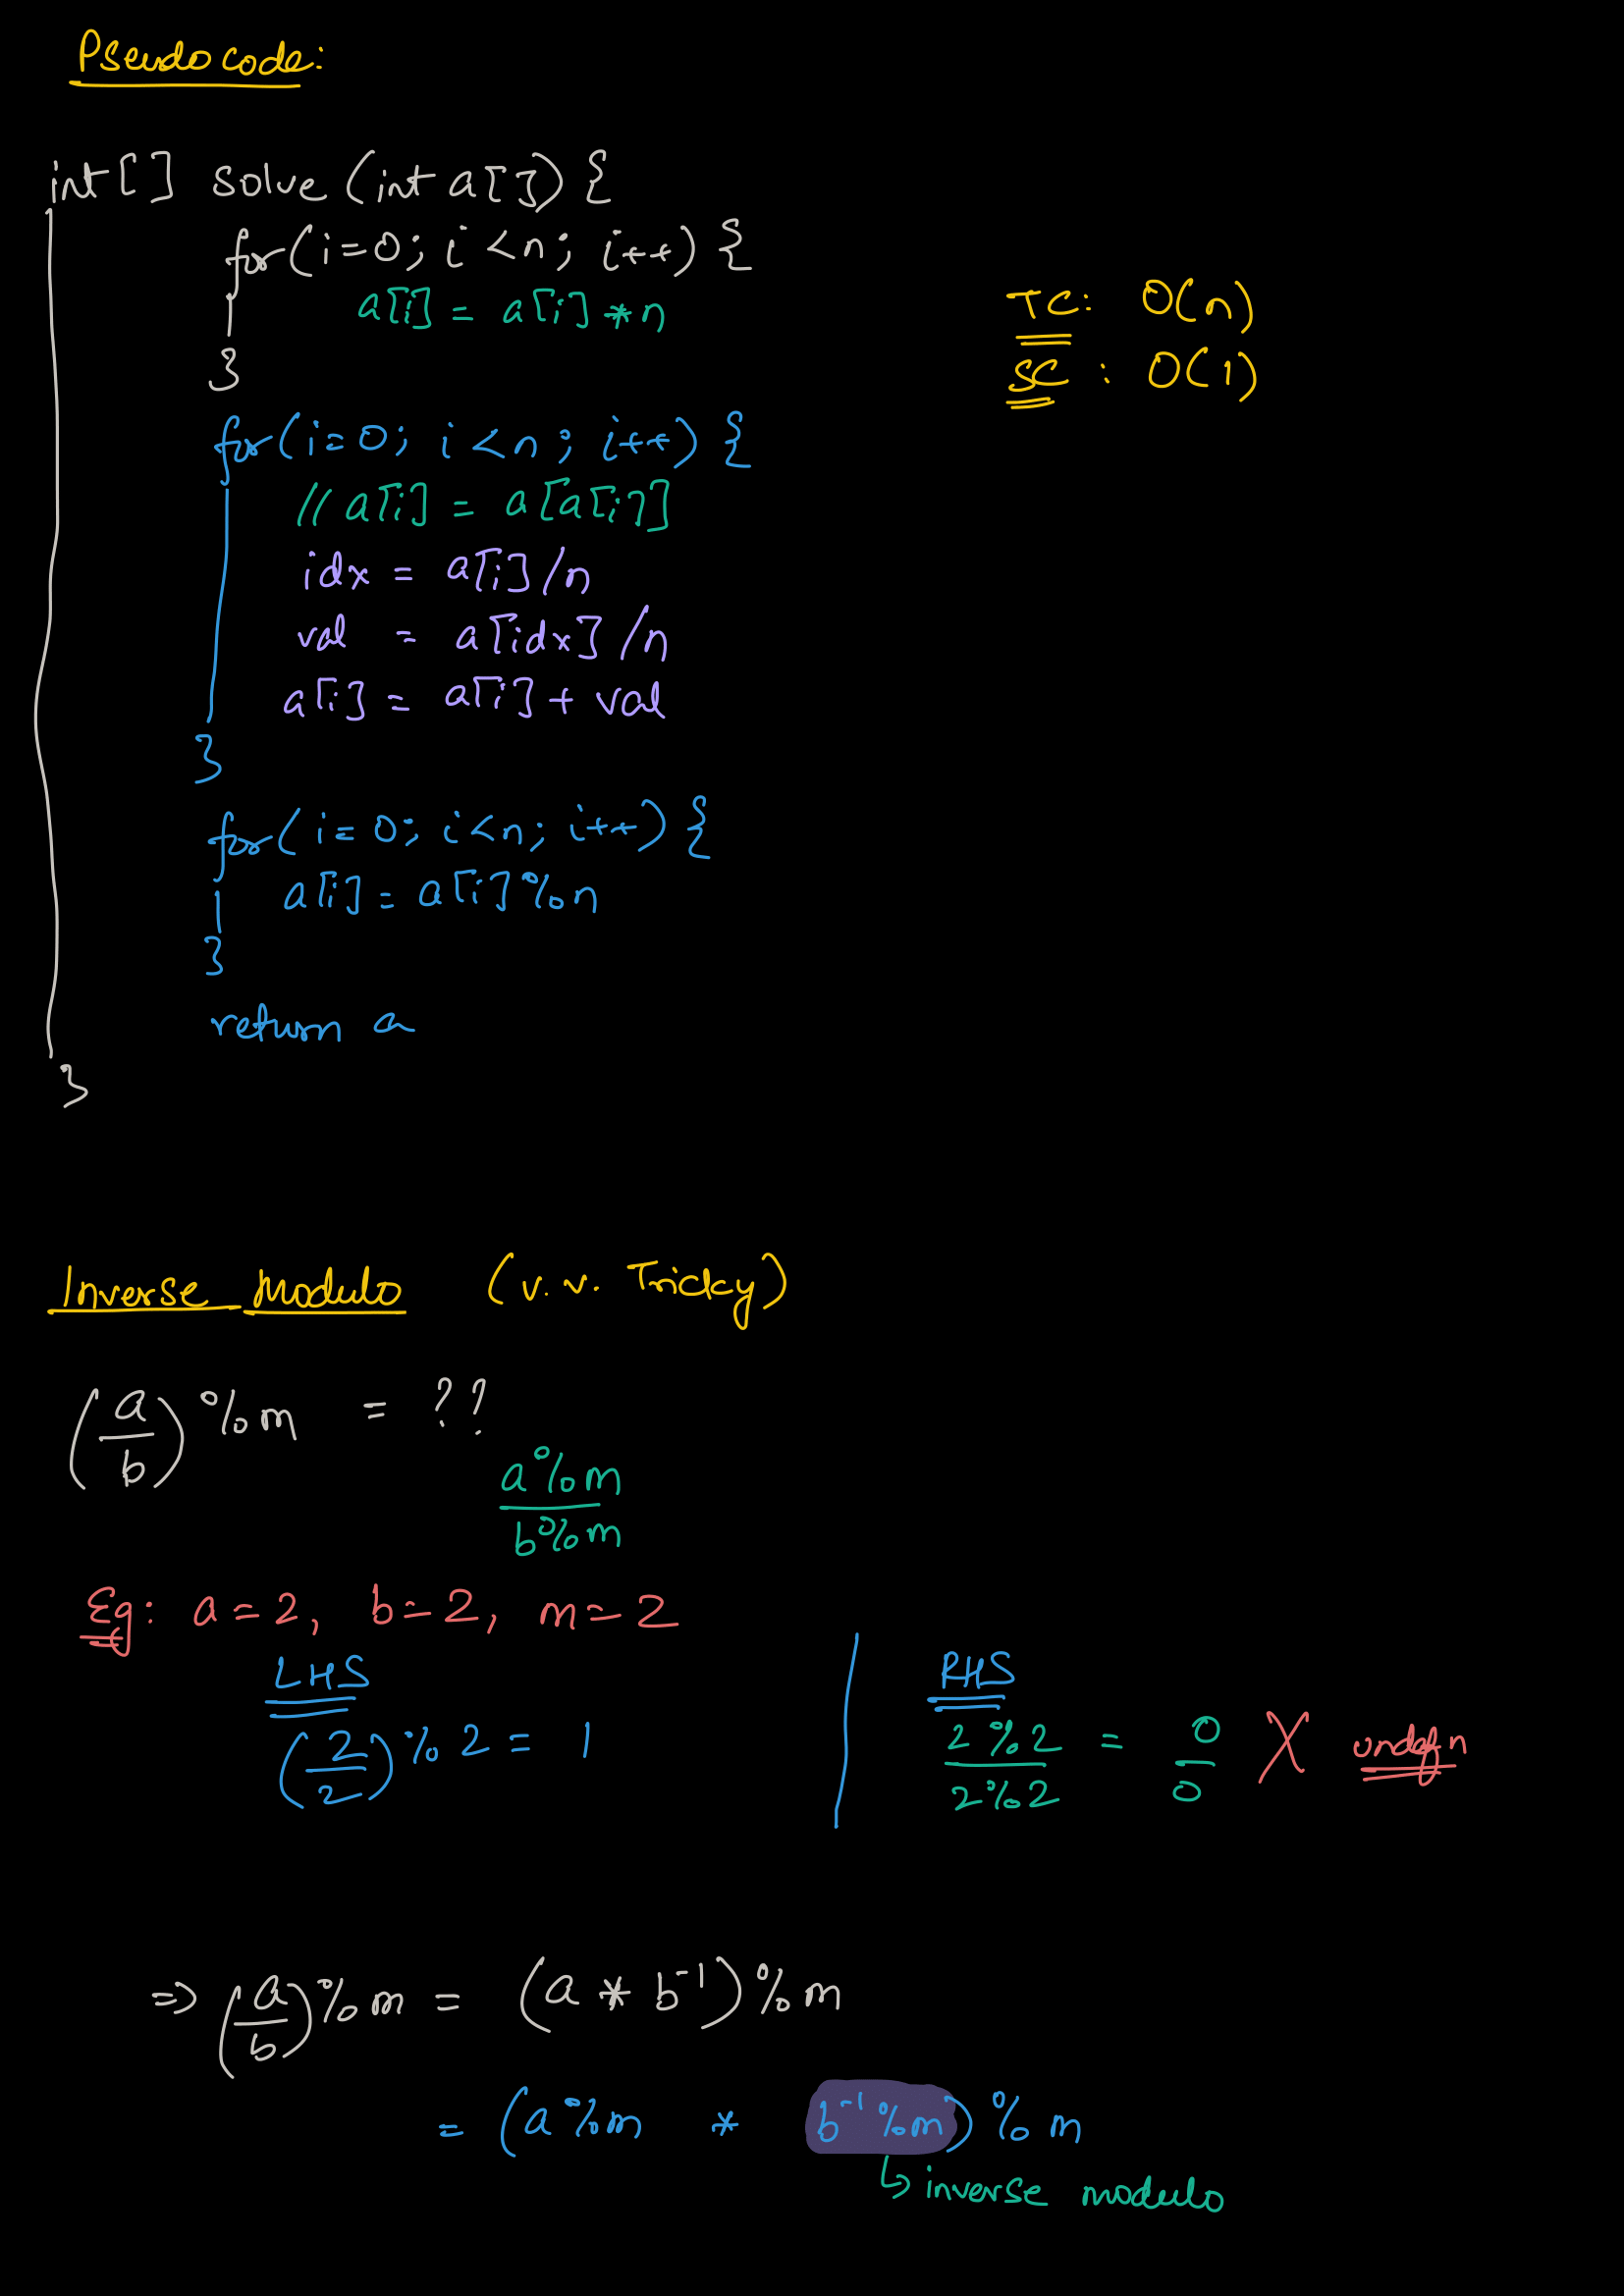 Pseudocode:
int[] solve(int a[]) {
for(i=0; i<n; i++) {
a[i] = a[i] * n
}
TC: O(n)
SC: O(1)
for(i=0; i<n; i++) {
// a[i] = a[a[i]]
idx = a[i]/n
val = a[idx]/n
a[i] = a[i] + val
}
for(i=0; i<n; i++) {
a[i] = a[i] % n
}
return a
}
Inverse Modulo (v.v. Tricky)
(a/b) % m = ??
a%m / b%m
Eg: a=2, b=2, m=2
LHS
(2/2) % 2 = 1
RHS
2%2 / 2%2 = 0/0 X undefn
=> (a/b) % m = (a * b⁻¹) % m
= (a%m * b⁻¹%m) % m
↳ inverse modulo